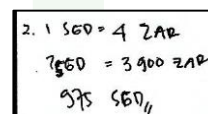 2. 1 SED = 4 ZAR
? SED = 3 900 ZAR
975 SED,,